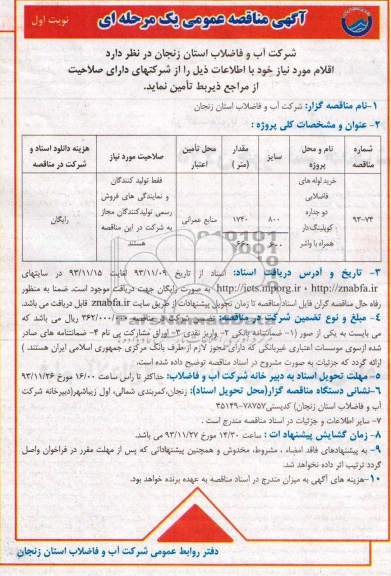 آگهی مناقصه عمومی یک مرحله ای
نوبت اول
شرکت آب و فاضلاب استان زنجان در نظر دارد
اقلام مورد نیاز خود با اطلاعات ذیل را از شرکتهای دارای صلاحیت
از مراجع ذیربط تأمین نماید.
۱-نام مناقصه گزار: شرکت آب و فاضلاب استان زنجان
۲- عنوان و مشخصات کلی پروژه :
شماره مناقصه
نام و محل پروژه
سایز
مقدار (متر)
محل تأمین اعتبار
صلاحیت مورد نیاز
هزینه دانلود اسناد و شرکت در مناقصه
۹۳-۷۴
خرید لوله های فاضلابی دو جداره کوپلینگ دار همراه با واشر
۸۰۰
۱۷۴۰
۶۰۰
۶۶۰
منابع عمرانی
فقط تولید کنندگان و نمایندگی های فروش رسمی تولیدکنندگان مجاز به شرکت در این مناقصه هستند
رایگان
۳- تاریخ و آدرس دریافت اسناد: اسناد از تاریخ ۹۳/۱۱/۰۹ لغایت ۹۳/۱۱/۱۵ در سایتهای
http://znabfa.ir و http://iets.mporg.ir به صورت رایگان جهت دریافت موجود است. ضمنا به منظور
رفاه حال مناقصه گران فایل اسناد مناقصه تا زمان تحویل پیشنهادات از طریق سایت znabfa.ir قابل دریافت می باشد.
۴- مبلغ و نوع تضمین شرکت در مناقصه: تضمین شرکت در مناقصه ۳۶۲/۰۰۰/۰۰۰ ریال می باشد که
می بایست به یکی از صور (۱- ضمانتنامه بانکی ۲- واریز نقدی ۳- اوراق مشارکت بی نام ۴- ضمانتنامه های صادر
شده ازسوی موسسات اعتباری غیربانکی که دارای مجوز لازم از طرف بانک مرکزی جمهوری اسلامی ایران هستند. )
ارائه گردد که جزئیات به صورت مشروح در اسناد مناقصه توضیح داده شده است.
۵- مهلت تحویل اسناد به دبیر خانه شرکت آب و فاضلاب: حداکثر تا راس ساعت ۱۶/۰۰ مورخ ۹۳/۱۱/۲۶
۶-نشانی دستگاه مناقصه گزار(محل تحویل اسناد): زنجان،کمربندی شمالی، اول زیباشهر(دبیرخانه شرکت
آب و فاضلاب استان زنجان) کدپستی۷۸۷۵۷-۴۵۱۴۹
۷- سایر اطلاعات و جزئیات در اسناد مناقصه مندرج است .
۸- زمان گشایش پیشنهاد ات : ساعت ۱۴/۳۰ مورخ ۹۳/۱۱/۲۷ می باشد.
۹- به پیشنهادهای فاقد امضاء ، مشروط، مخدوش و همچنین پیشنهاداتی که پس از مهلت مقرر در فراخوان واصل
گردد ترتیب اثر داده نخواهد شد.
۱۰-هزینه های آگهی به میزان مندرج در اسناد مناقصه به عهده برنده خواهد بود.
دفتر روابط عمومی شرکت آب و فاضلاب استان زنجان